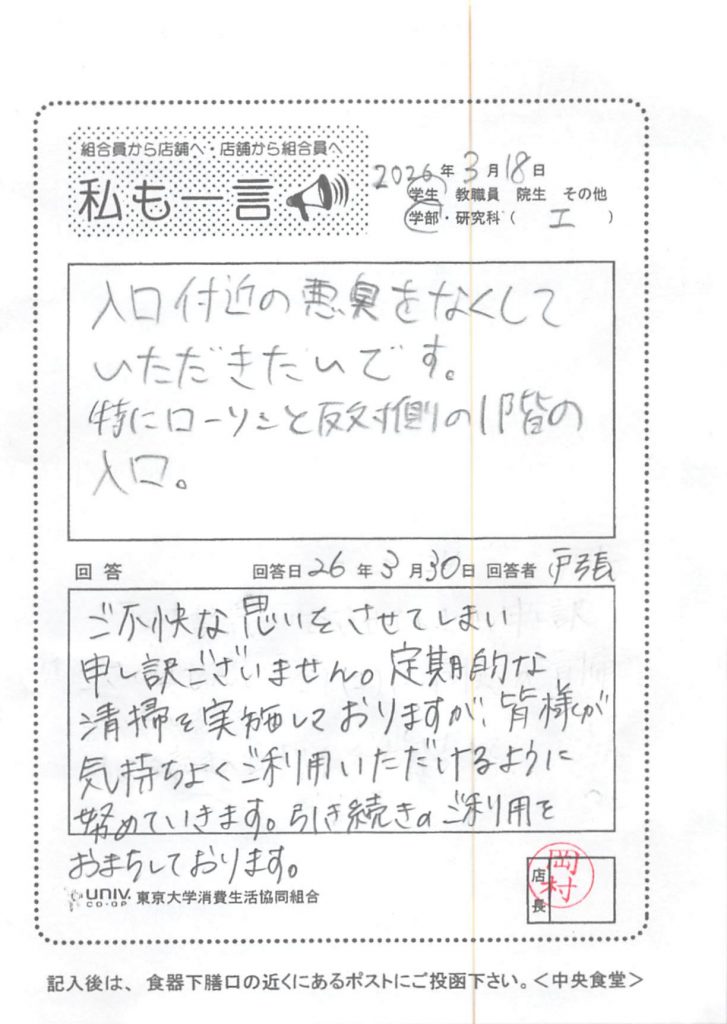 組合員から店舗へ・店舗から組合員へ
私も一言
2026年3月18日
学生 教職員 院生 その他
学部・研究科(工)
入口付近の悪臭をなくして
いただきたいです。
特にローソンと反対側の1階の
入口。
回答 回答日26年3月30日 回答者 戸張
ご不快な思いをさせてしまい
申し訳ございません。定期的な
清掃を実施しておりますが、皆様が
気持ちよくご利用いただけるように
努めていきます。引き続きのご利用を
おまちしております。
UNIV. CO-OP 東京大学消費生活協同組合
店長 岡村
記入後は、食器下膳口の近くにあるポストにご投函下さい。<中央食堂>